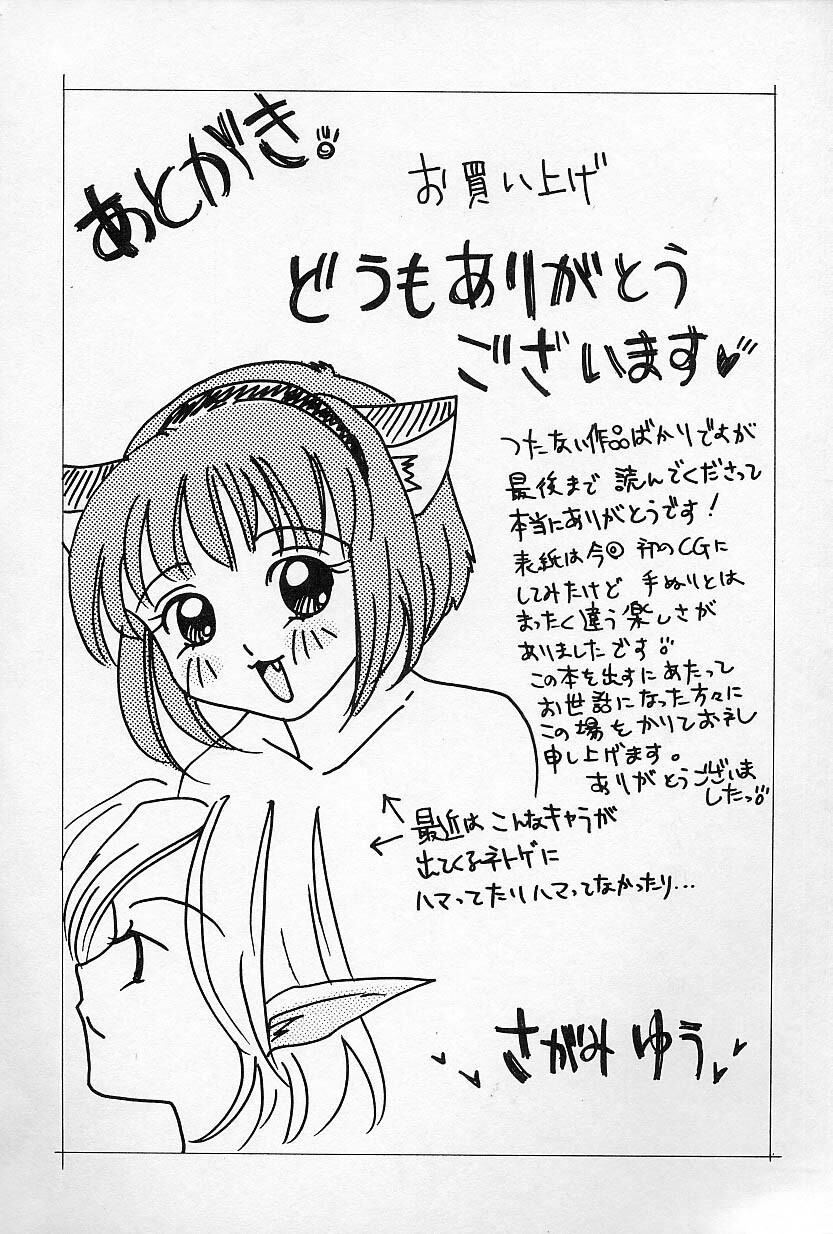 あとがき。
お買い上げ
どうもありがとう
ございます♥
つたない作品ばかりですが
最後まで読んでくださって
本当にありがとうです！
表紙は今回初のCGに
してみたけど手ぬりとは
まったく違う楽しさが
ありましたです。
この本を出すにあたって
お世話になった方々に
この場をかりてお礼
申し上げます。
ありがとうございま
したっ。
最近はこんなキャラが
出てくるネトゲに
ハマってたりハマってなかったり…
さがみゆう